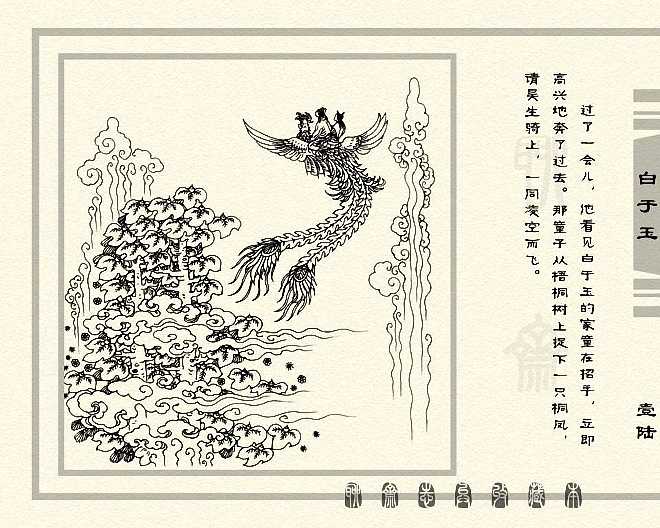 过了一会儿，他看见白于玉的家童在招手，立即
高兴地奔了过去。那童子从梧桐树上捉下一只桐凤，
请吴生骑上，一同凌空而飞。
白于玉
壹陆